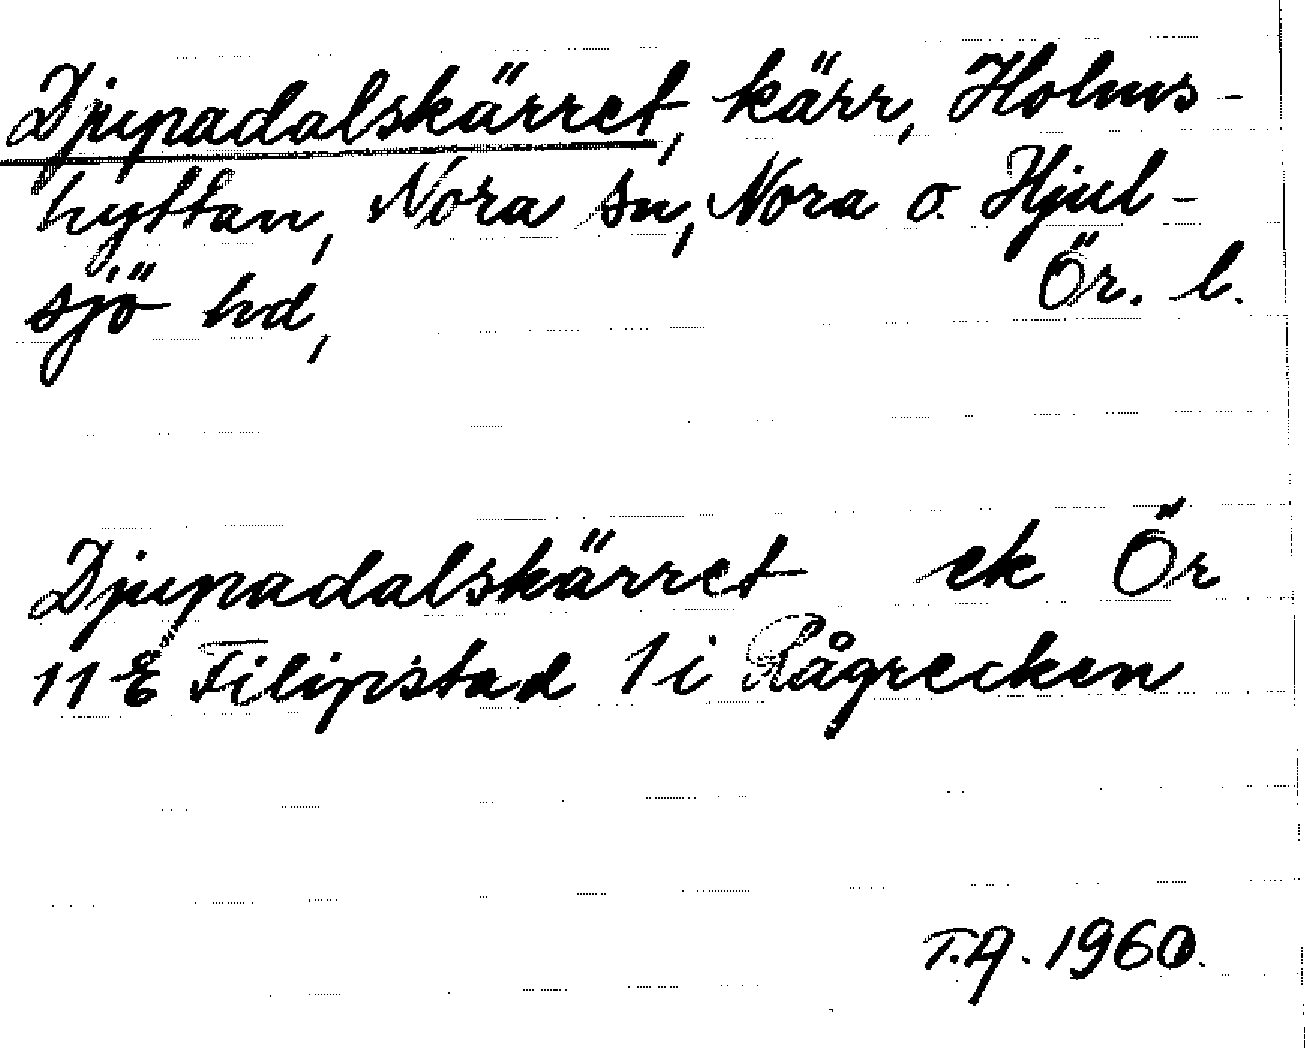 Djupadalskärret, kärr, Holms-
hyttan, Nora sn, Nora o. Hjul-
sjö hd, Ör. l.
Djupadalskärret ek Ör
11 E Filipstad 1 i Rågrecken
T.A. 1960.